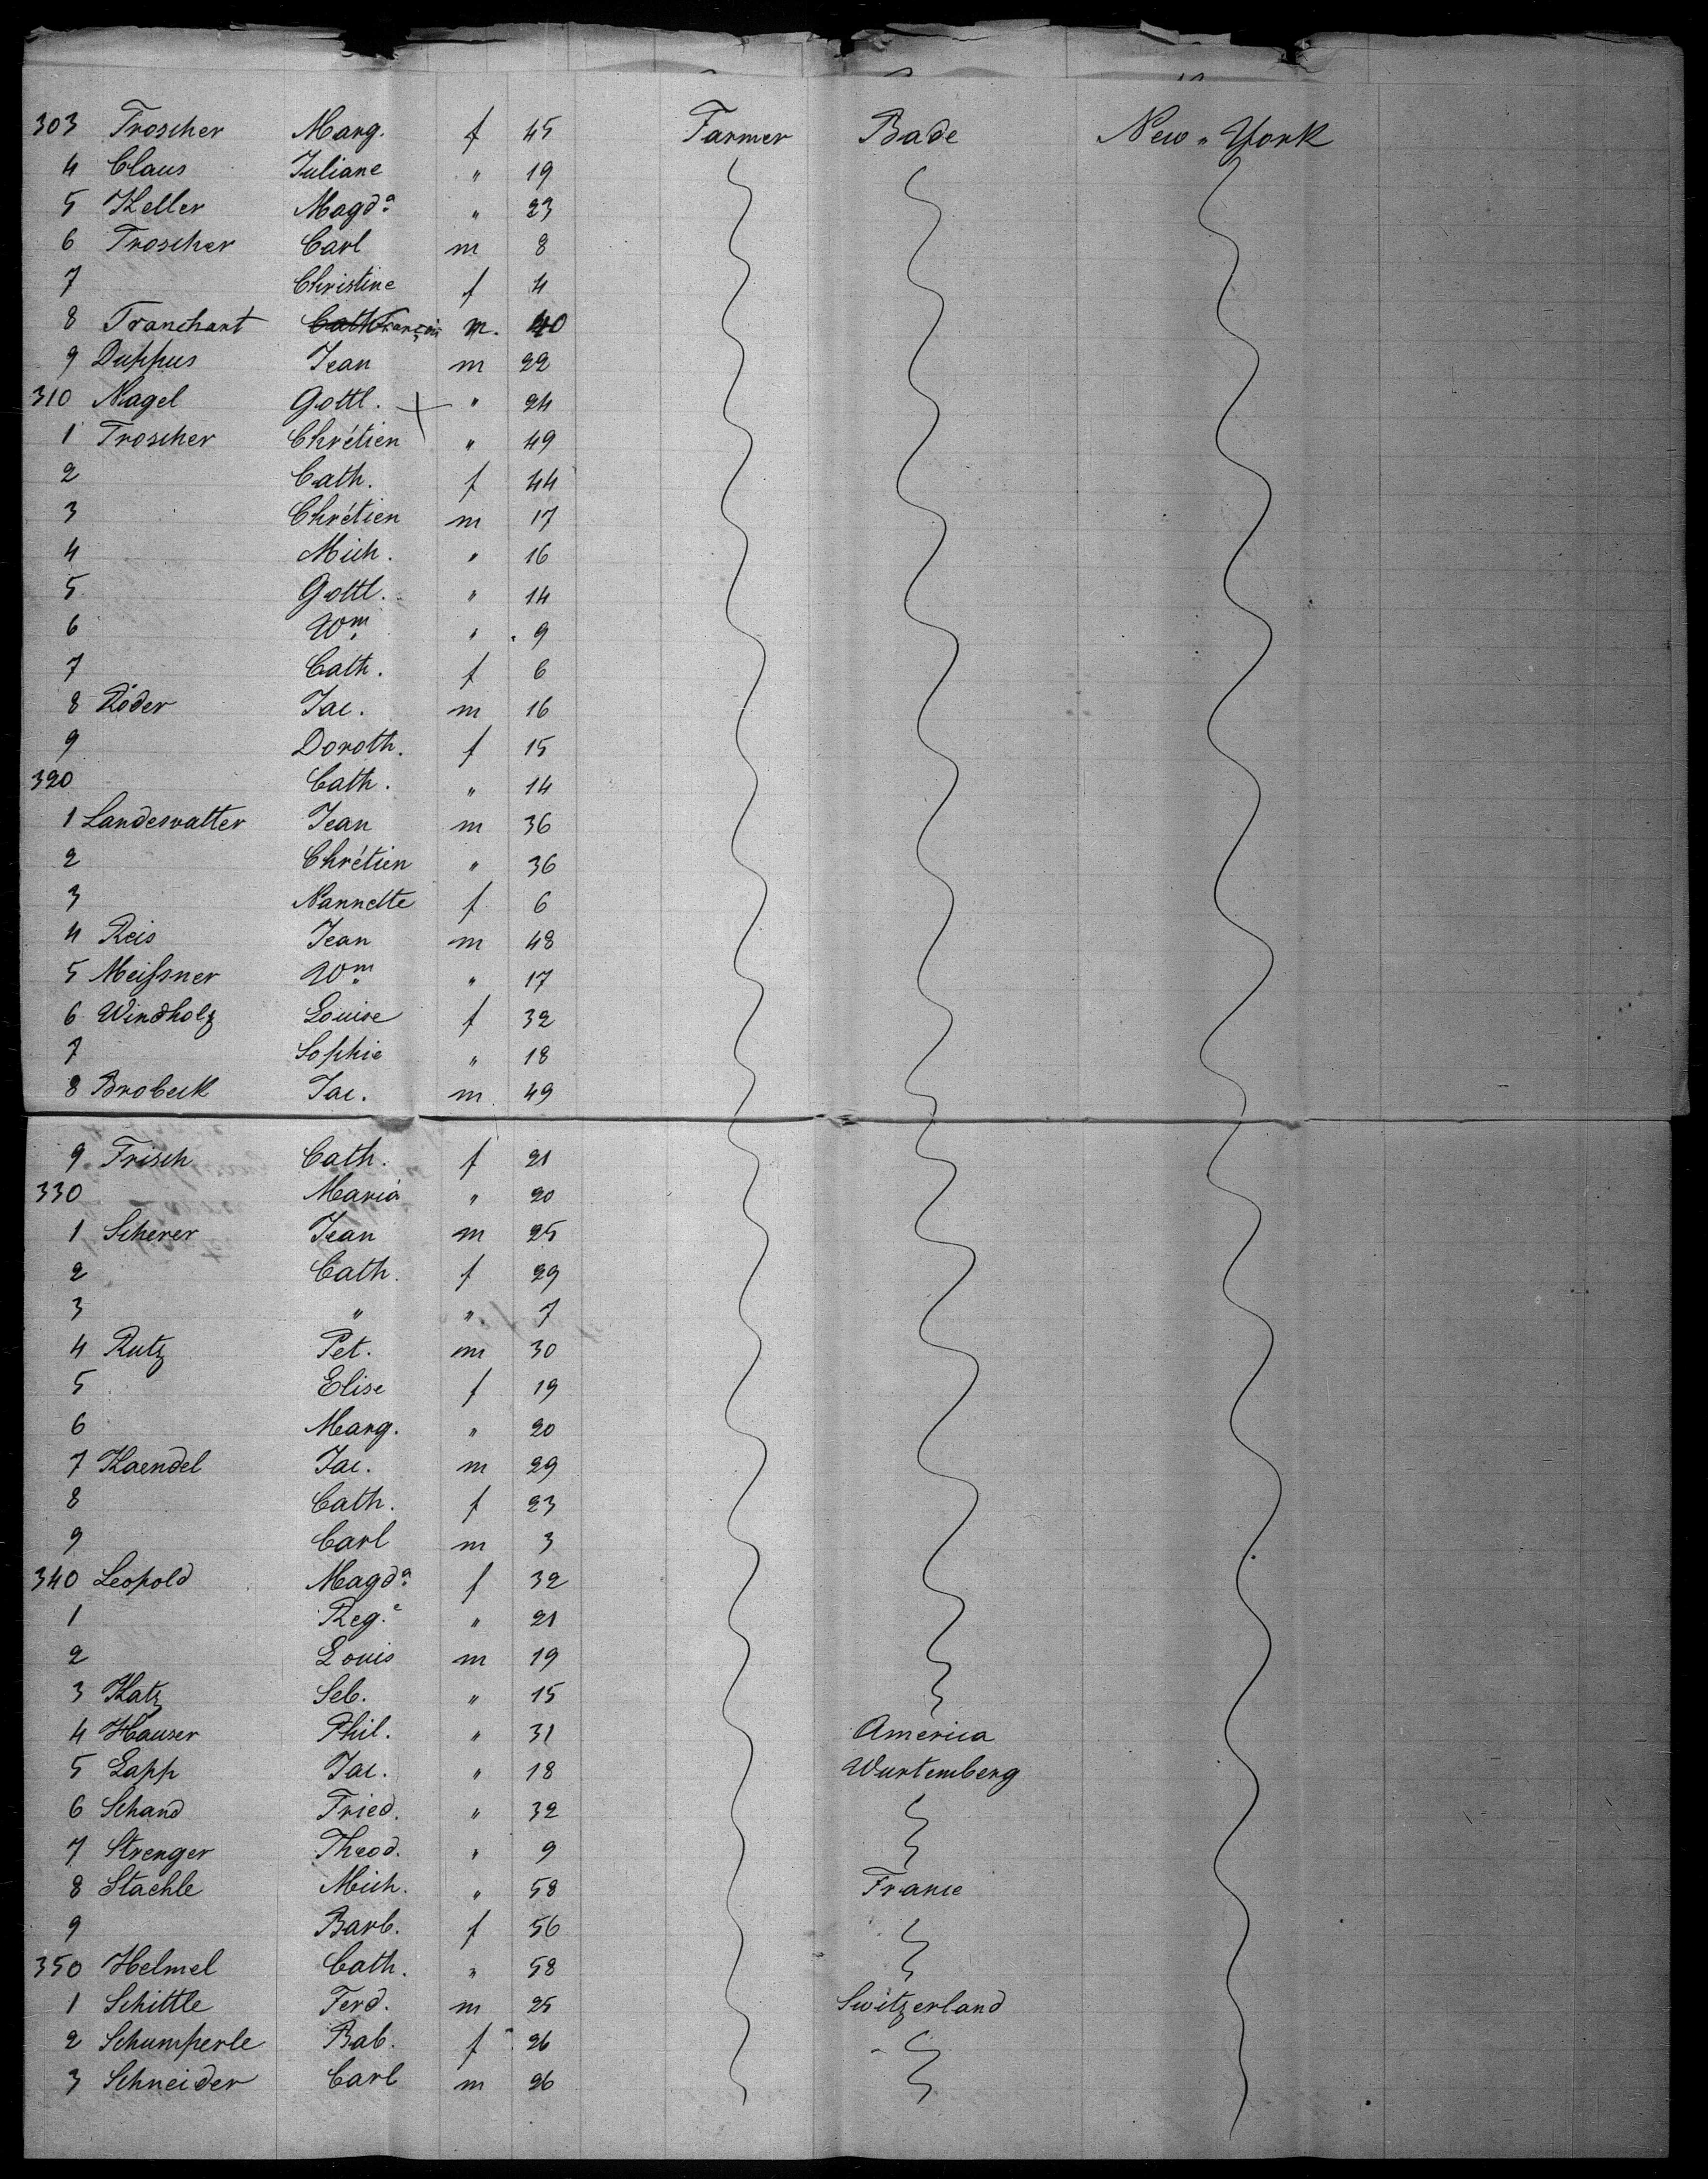 303 Troscher Marg. f 45 Farmer Bade New-York
4 Claus Juliane " 19
5 Keller Magda " 23
6 Troscher Carl m 8
7 Christine f 4
8 Tranchant Cath François m. 40
9 Duppus Jean m 22
310 Nagel Gottl. " 24
1 Troscher Chrétien " 49
2 Cath. f 44
3 Chrétien m 17
4 Mich. " 16
5 Gottl. " 14
6 Wm " 9
7 Cath. f 6
8 Röder Jac. m 16
9 Doroth. f 15
320 Cath. " 14
1 Landesvatter Jean m 36
2 Chrétien " 36
3 Nannette f 6
4 Reis Jean m 48
5 Meißner Wm " 17
6 Windholz Louise f 32
7 Sophie " 18
8 Brobeck Jac. m 49
9 Frisch Cath. f 21
330 Maria " 20
1 Scherer Jean m 25
2 Cath. f 29
3 " " 7
4 Rutz Pet. m 30
5 Elise f 19
6 Marg. " 20
7 Kaendel Jac. m 29
8 Cath. f 23
9 Carl m 3
340 Leopold Magda f 32
1 Rege " 21
2 Louis m 19
3 Katz Seb. " 15
4 Hauser Phil. " 31 America
5 Lapp Jac. " 18 Wurtemberg
6 Schand Fried. " 32
7 Strenger Theod. " 9
8 Staehle Mich. " 58 France
9 Barb. f 56
350 Helmel Cath. " 58
1 Schittle Ferd. m 25 Switzerland
2 Schumperle Bab. f 26
3 Schneider Carl m 26